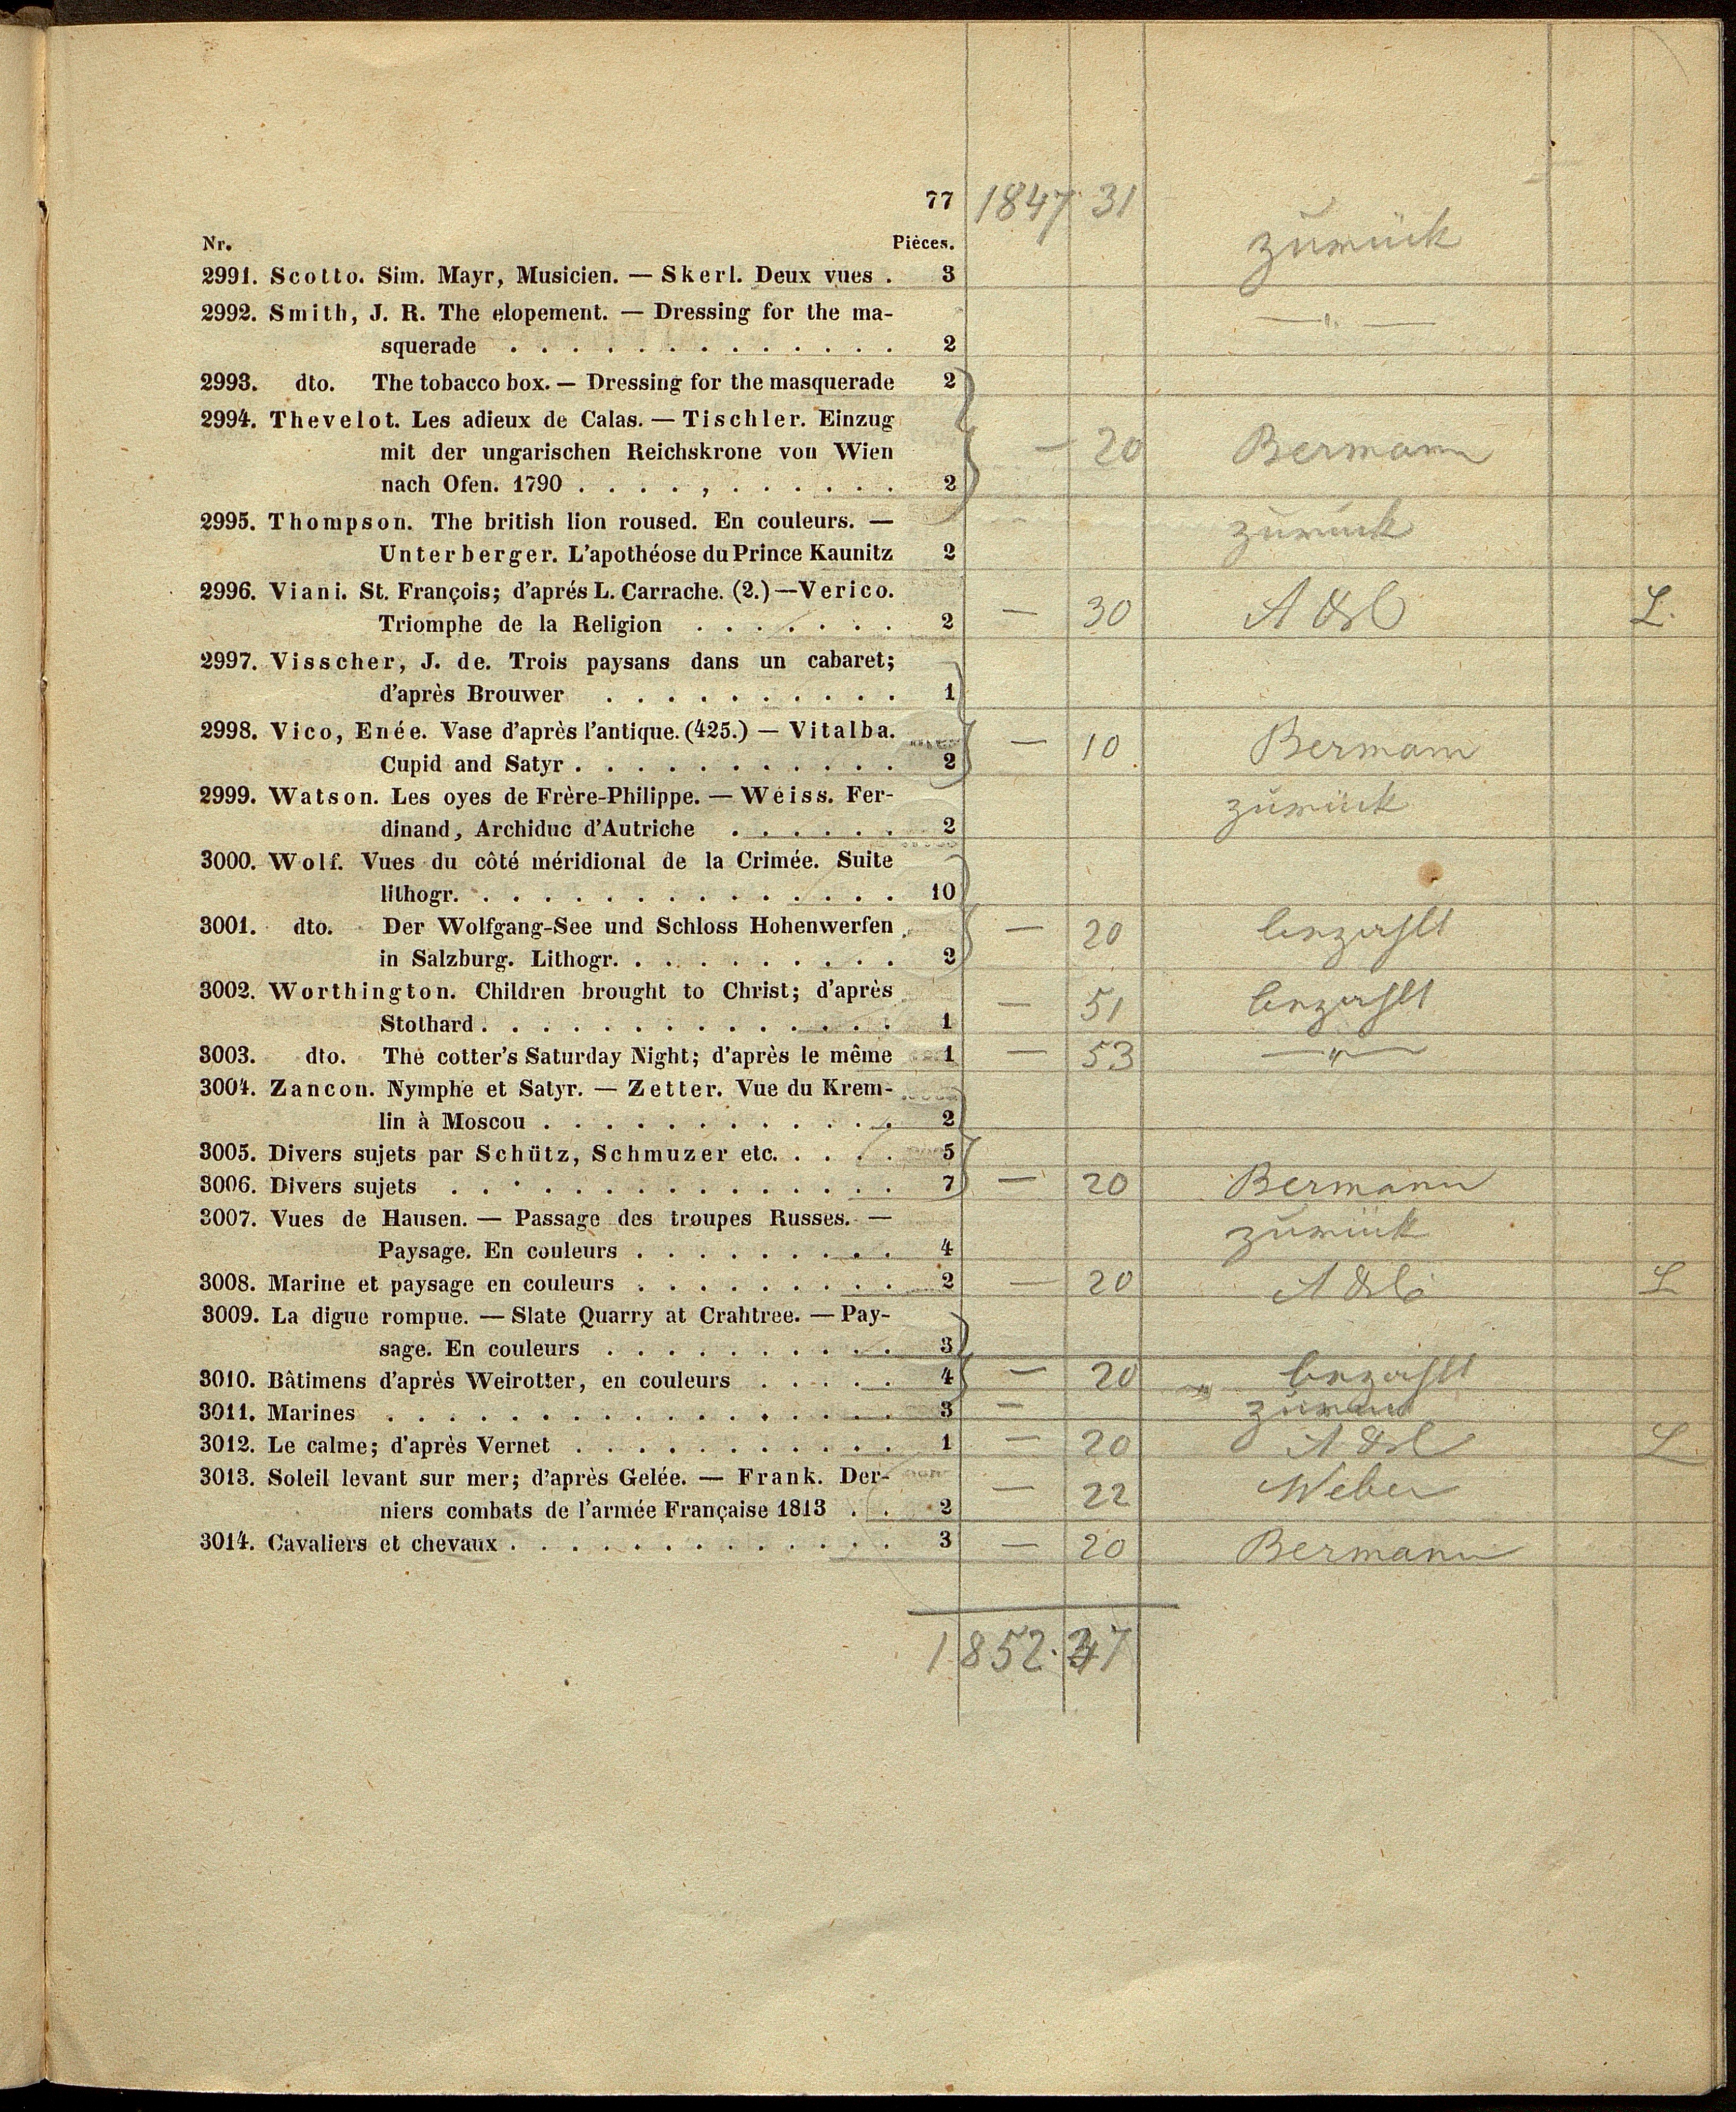 77 1847 31
Nr. Pièces. zurück
2991. Scotto. Sim. Mayr, Musicien. — Skerl. Deux vues . 3
2992. Smith, J. R. The elopement. — Dressing for the ma- — " —
squerade . . . . . . . . . . . . . 2
2993. dto. The tobacco box. — Dressing for the masquerade 2
2994. Thevelot. Les adieux de Calas. — Tischler. Einzug
mit der ungarischen Reichskrone von Wien — 20 Bermann
nach Ofen. 1790 . . . . , . . . . . . 2
2995. Thompson. The british lion roused. En couleurs. — zurück
Unterberger. L'apothéose du Prince Kaunitz 2
2996. Viani. St. François; d'aprés L. Carrache. (2.) — Verico.
Triomphe de la Religion . . . . . . . 2 — 30 L.
2997. Visscher, J. de. Trois paysans dans un cabaret;
d'après Brouwer . . . . . . . . . . 1
2998. Vico, Enée. Vase d'après l'antique. (425.) — Vitalba. — 10 Bermann
Cupid and Satyr . . . . . . . . . . . 2
2999. Watson. Les oyes de Frère-Philippe. — Weiss. Fer- zurück
dinand, Archiduc d'Autriche . . . . . . 2
3000. Wolf. Vues du côté méridional de la Crimée. Suite
lithogr. . . . . . . . . . . . . . . 10
3001. dto. Der Wolfgang-See und Schloss Hohenwerfen — 20
in Salzburg. Lithogr. . . . . . . . . . 2
3002. Worthington. Children brought to Christ; d'après — 51
Stothard . . . . . . . . . . . . . . 1
3003. dto. The cotter's Saturday Night; d'après le même 1 — 53 — " —
3004. Zancon. Nymphe et Satyr. — Zetter. Vue du Krem-
lin à Moscou . . . . . . . . . . . . 2
3005. Divers sujets par Schütz, Schmuzer etc. . . . . 5
3006. Divers sujets . . . . . . . . . . . . . . . 7 — 20 Bermann
3007. Vues de Hausen. — Passage des troupes Russes. — zurück
Paysage. En couleurs . . . . . . . . . 4
3008. Marine et paysage en couleurs . . . . . . . . . 2 — 20 L
3009. La digue rompue. — Slate Quarry at Crahtree. — Pay-
sage. En couleurs . . . . . . . . . . 3
3010. Bâtimens d'après Weirotter, en couleurs . . . . . 4 — 20
3011. Marines . . . . . . . . . . . . . . . . . 3 — zurück
3012. Le calme; d'après Vernet . . . . . . . . . . . 1 — 20 L
3013. Soleil levant sur mer; d'après Gelée. — Frank. Der- — 22 Weber
niers combats de l'armée Française 1813 . . 2
3014. Cavaliers et chevaux . . . . . . . . . . . . . 3 — 20 Bermann
1852.